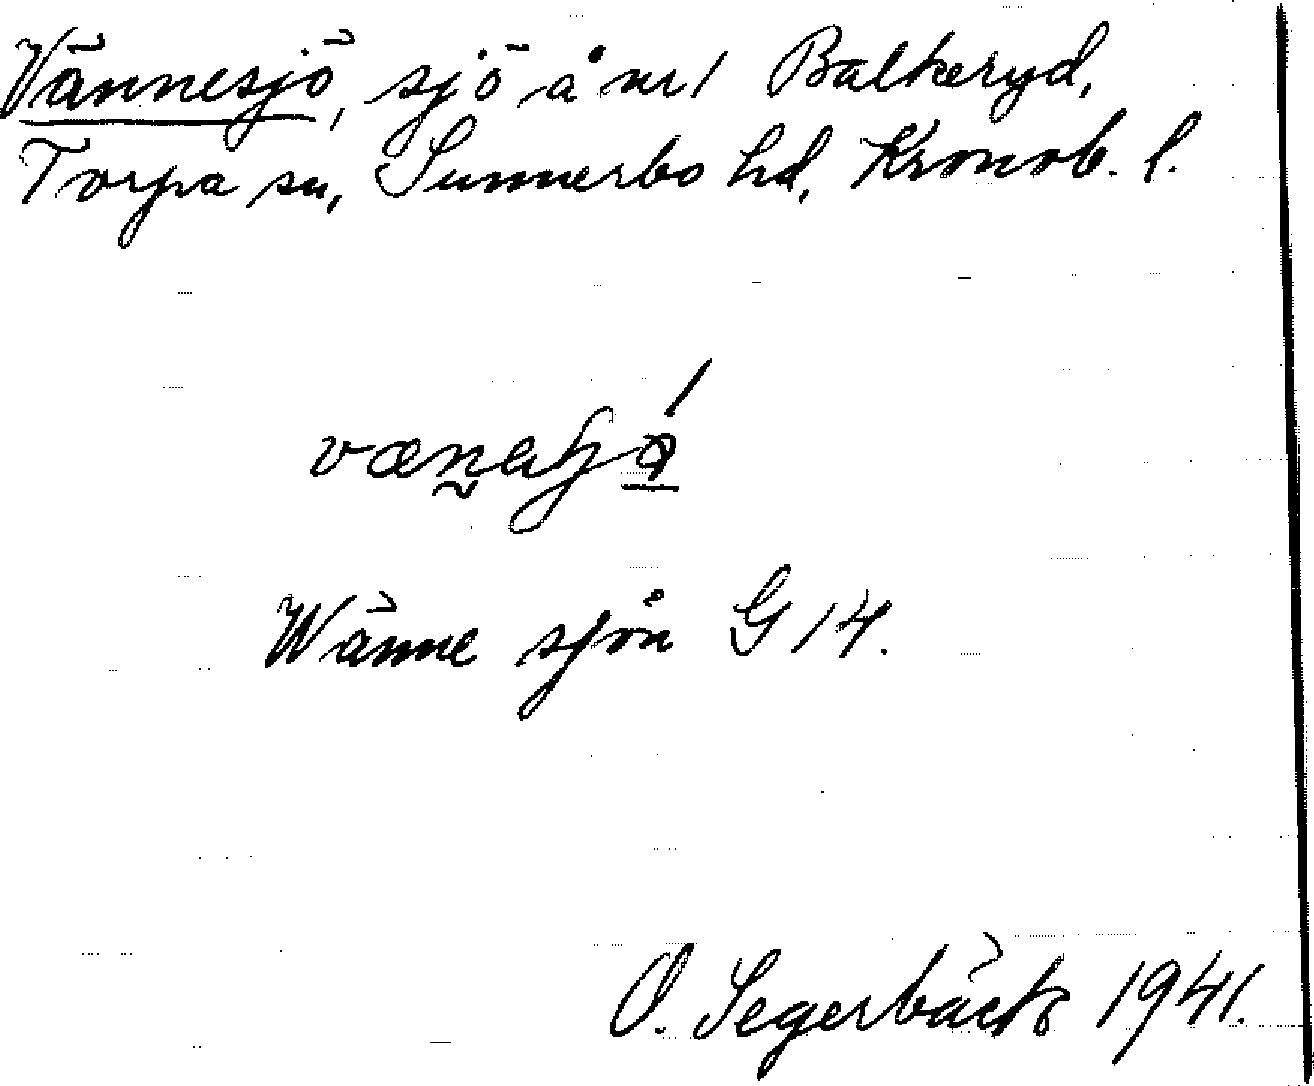 Vännesjö, sjö å nr 1 Balkeryd,
Torpa sn, Sunnerbo hd, Kronob. l.
Wänne sjön G 14.
O. Segerbäck 1941.